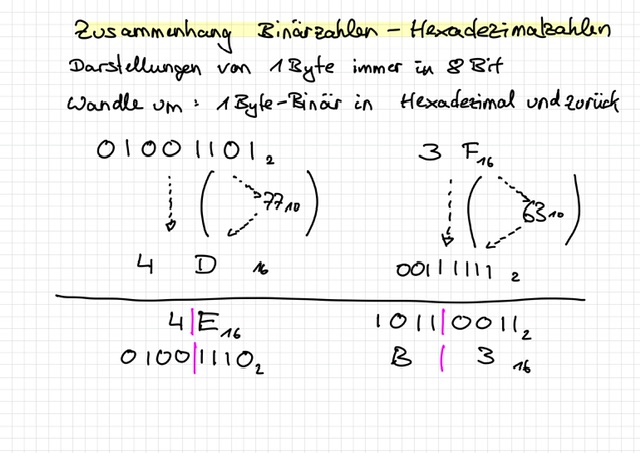 Zusammenhang Binärzahlen - Hexadezimalzahlen
Darstellungen von 1 Byte immer in 8 Bit
Wandle um: 1 Byte-Binär in Hexadezimal und zurück
01001101₂ 3 F₁₆
(77₁₀) (63₁₀)
4 D ₁₆ 00111111 ₂
4|E₁₆ 1011|0011₂
0100|1110₂ B | 3 ₁₆